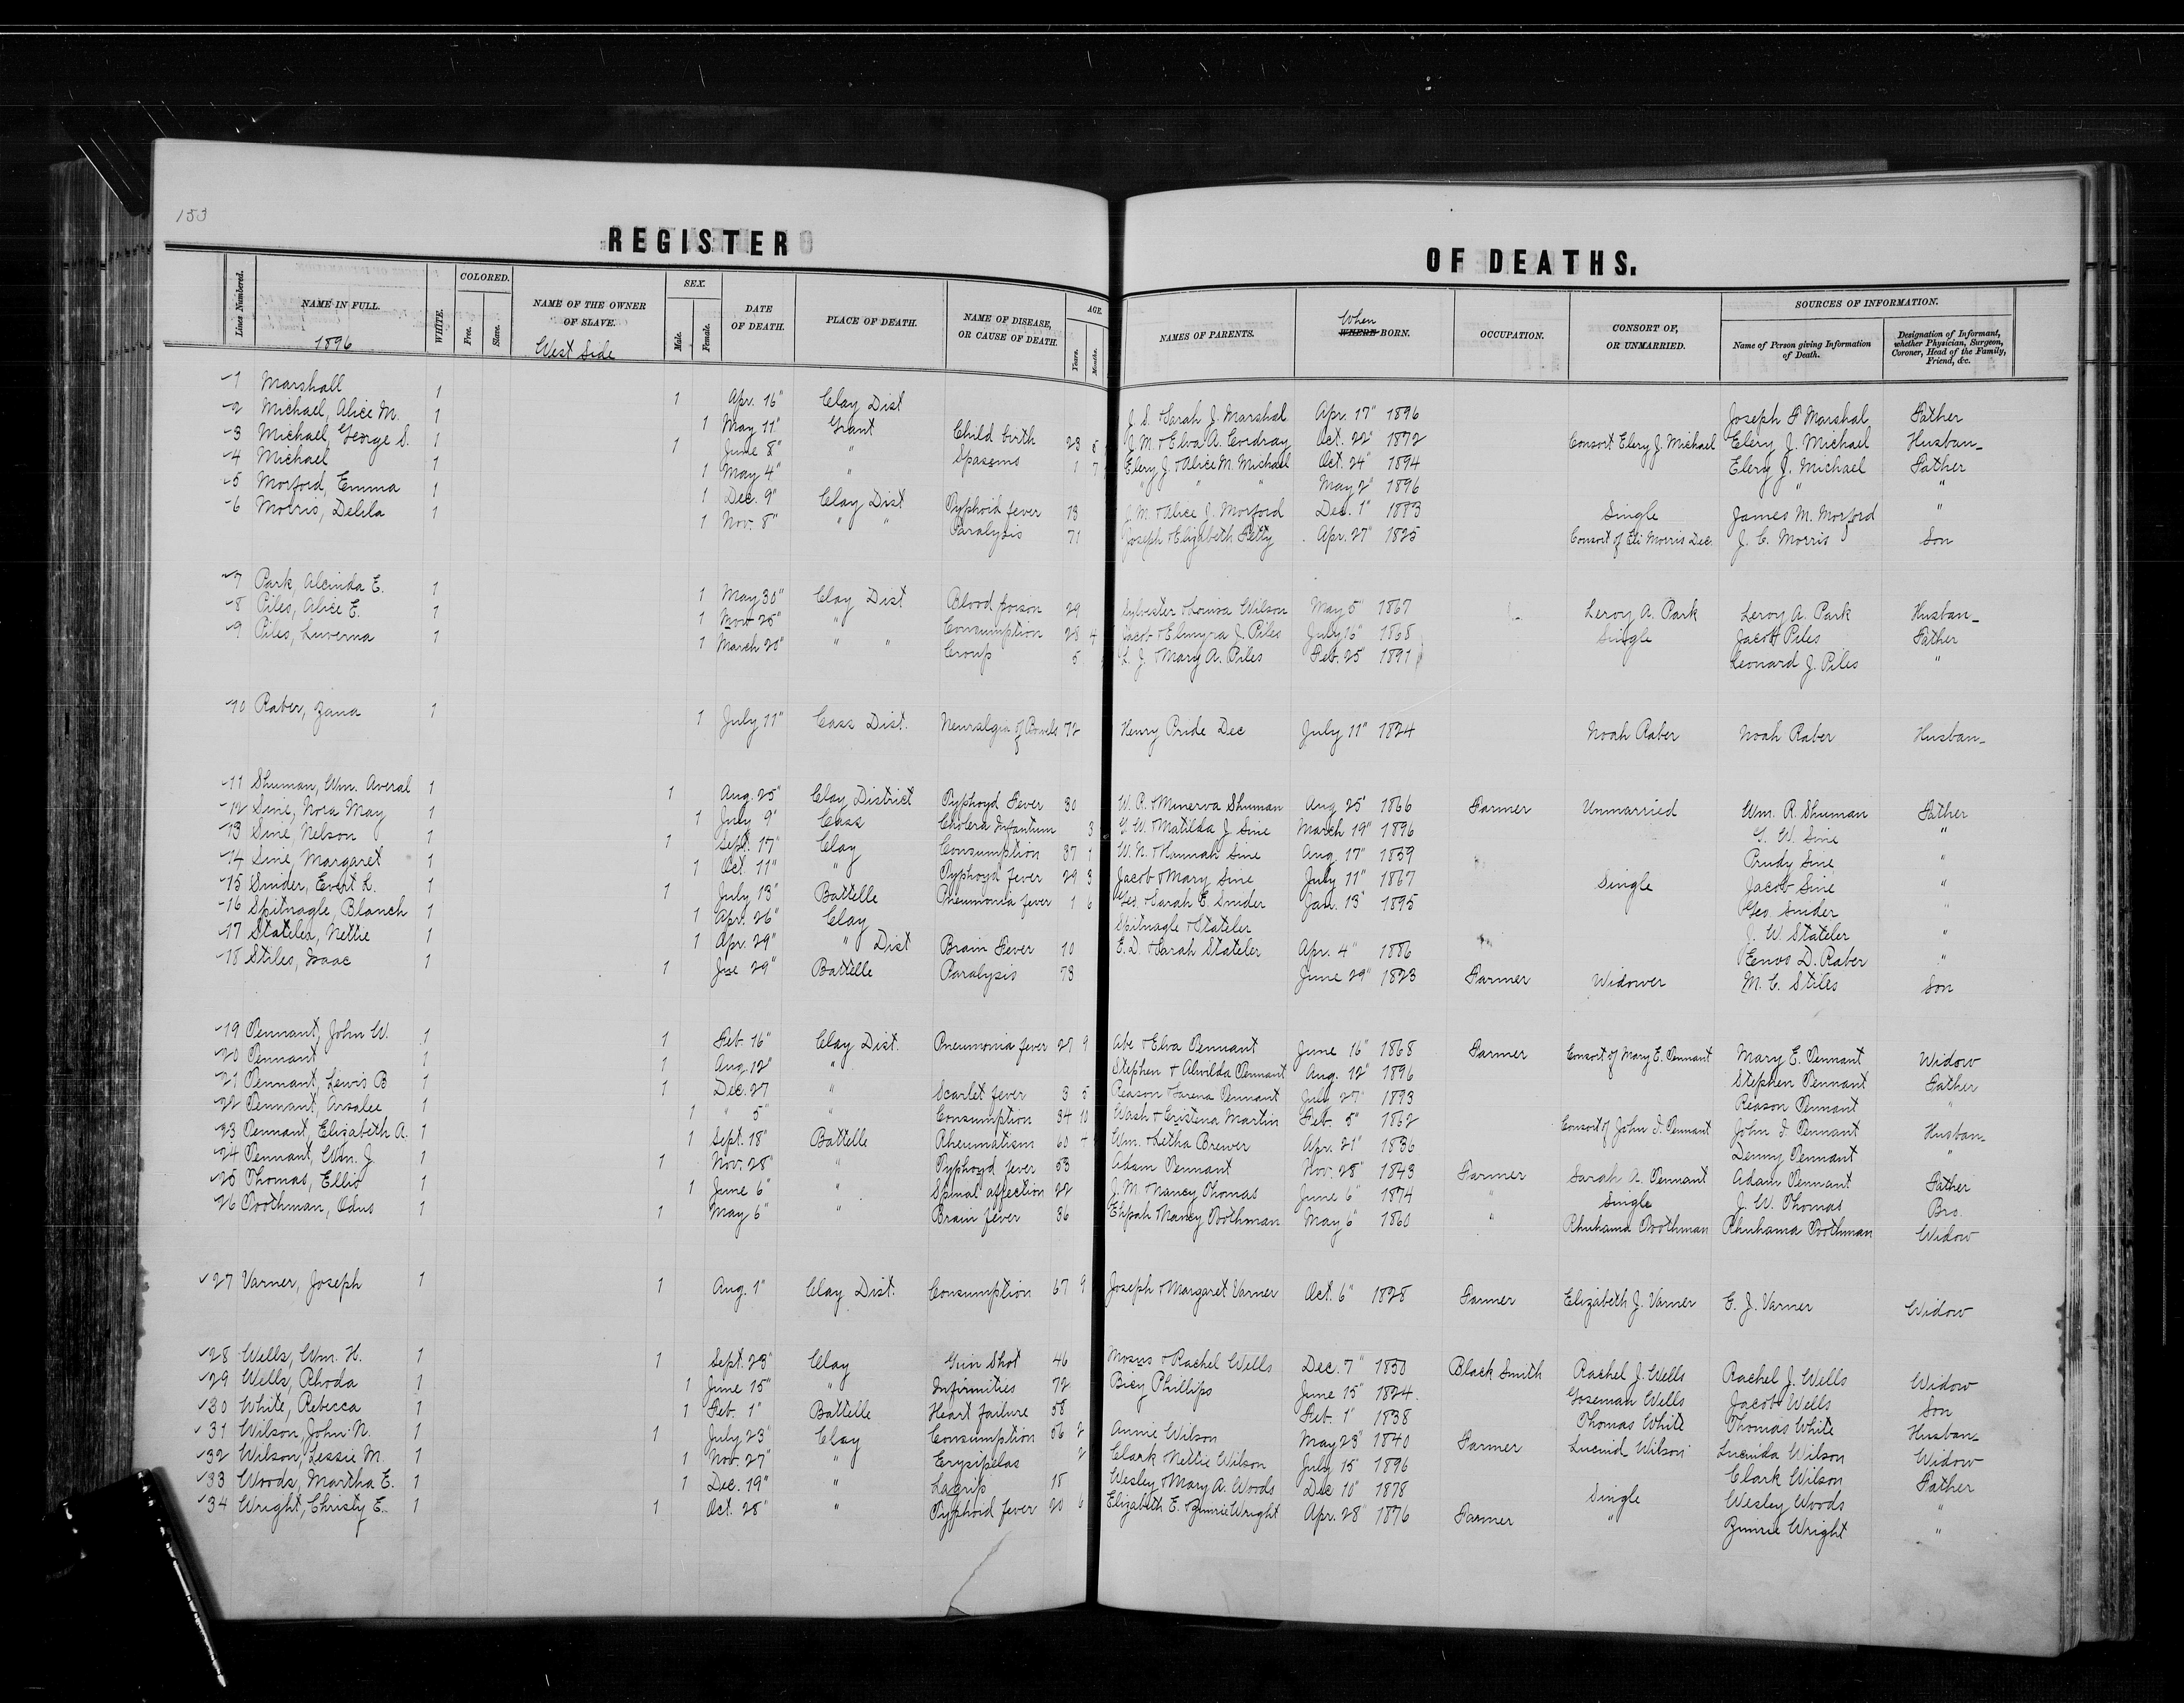 153
REGISTER OF DEATHS.
Lines Numbered. NAME IN FULL. WHITE. COLORED. Free. Slave. NAME OF THE OWNER OF SLAVE. SEX. Male. Female. DATE OF DEATH. PLACE OF DEATH. NAME OF DISEASE, OR CAUSE OF DEATH. AGE. Years. Months. NAMES OF PARENTS. When WHERE BORN. OCCUPATION. CONSORT OF, OR UNMARRIED. SOURCES OF INFORMATION. Name of Person giving Information of Death. Designation of Informant, whether Physician, Surgeon, Coroner, Head of the Family, Friend, &c.
1896 West Side
1 Marshall 1 1 Apr. 16" Clay Dist J. S. & Sarah J. Marshal Apr. 17" 1896 Joseph S Marshal Father
2 Michael, Alice M. 1 1 May 11" Grant Child birth 23 J. M. & Elva A. Cordray Oct. 22" 1872 Consort Elery J. Michael Elery J. Michael Husban
3 Michael, George S. 1 1 June 8" " Spasms 1 7 Elery J. & Alice M. Michael Oct. 24" 1894 Elery J. Michael Father
4 Michael 1 1 May 4" " " " " May 2" 1896 " "
5 Morford, Emma 1 1 Dec. 9" Clay Dist Typhoid fever 13 J. M. & Alice J. Morford Dec. 1" 1883 Single James M. Morford "
6 Morris, Delila 1 1 Nov. 8" " " Paralysis 71 Joseph & Elizabeth Petty Apr. 27" 1825 Consort of Eli Morris Dec. J. C. Morris Son
7 Park, Alcinda E. 1 1 May 30" Clay Dist Blood poison 29 Sylvester & Louisa Wilson May 5" 1867 Leroy A. Park Leroy A. Park Husban
8 Piles, Alice E. 1 1 Nov 25" " Consumption 28 4 Jacob & Elmyra J. Piles July 16" 1868 Single Jacob Piles Father
9 Piles, Luverna 1 1 March 20" " " Croup 5 L. J. & Mary A. Piles Feb. 25" 1891 Leonard J. Piles "
10 Raber, Zana 1 1 July 11" Cass Dist. Neuralgia of Bowels 72 Henry Pride Dec July 11" 1824 Noah Raber Noah Raber Husban
11 Shuman, Wm. Averal 1 1 Aug. 25" Clay District Typhoyd Fever 30 W. R. & Minerva Shuman Aug 25" 1866 Farmer Unmarried Wm. R. Shuman Father
12 Sine, Nora May 1 1 July 9" Cass Cholera Infantum 3 G. W. & Matilda J. Sine March 19" 1896 G. W. Sine "
13 Sine, Nelson 1 1 Sept. 17" Clay Consumption 37 1 W. N. & Hannah Sine Aug. 17" 1859 Prudy Sine "
14 Sine, Margaret 1 1 Oct. 11" " Typhoyd fever 29 3 Jacob & Mary Sine July 11" 1867 Single Jacob Sine "
15 Snider, Evert L. 1 1 July 13" Battelle Pneumonia fever 1 6 Geo. & Sarah E. Snider Jan. 13" 1895 Geo. Snider "
16 Spitnagle, Blanch 1 1 Apr. 26" Clay Spitnagle & Stateler J. W. Stateler "
17 Stateler, Nettie 1 1 Apr. 29" " Dist Brain Fever 10 E. D. & Sarah Stateler Apr. 4" 1886 Enos D. Raber "
18 Stiles, Isaac 1 1 Jne 29" Battelle Paralysis 73 June 29" 1823 Farmer Widower M. C. Stiles Son
19 Tennant, John W. 1 1 Feb. 16" Clay Dist. Pneumonia fever 27 9 Abe & Elva Tennant June 16" 1868 Farmer Consort of Mary E. Tennant Mary E. Tennant Widow
20 Tennant 1 1 Aug. 12" " Stephen & Alvilda Tennant Aug. 12" 1896 Stephen Tennant Father
21 Tennant, Lewis B 1 1 Dec. 27 " Scarlet fever 3 5 Reason & Tarena Tennant July 27" 1893 Reason Tennant "
22 Tennant, Arsalee 1 1 " 5" " Consumption 34 10 Wash & Cristena Martin Feb. 5" 1862 Consort of John I. Tennant John I. Tennant Husban
23 Tennant, Elizabeth A. 1 1 Sept. 18" Battelle Rheumatism 60 Wm. & Letha Brewer Apr. 21" 1836 Denny Tennant "
24 Tennant, Wm. J 1 1 Nov. 28" " Typhoyd fever 53 Adam Tennant Nov. 28" 1843 Farmer Sarah A. Tennant Adam Tennant Father
25 Thomas, Ellis 1 1 June 6" " Spinal affection 22 J. M. & Nancy Thomas June 6" 1874 " Single J. W. Thomas Bro.
26 Toothman, Odus 1 1 May 6" " Brain fever 36 Nancy Toothman May 6" 1860 " Rhuhama Toothman Rhuhama Toothman Widow
27 Varner, Joseph 1 1 Aug. 1" Clay Dist. Consumption 67 9 Joseph & Margaret Varner Oct. 6" 1828 Farmer Elizabeth J. Varner E. J. Varner Widow
28 Wells, Wm. H. 1 1 Sept. 23" Clay Gun Shot 46 Moses & Rachel Wells Dec. 7" 1850 Black Smith Rachel J. Wells Rachel J. Wells Widow
29 Wells, Rhoda 1 1 June 15" " Infirmities 72 Bicy Phillips June 15" 1824. Goseman Wells Jacob Wells Son
30 White, Rebecca 1 1 Feb. 1" Battelle Heart failure 58 Feb. 1" 1838 Thomas White Thomas White Husban
31 Wilson, John N. 1 1 July 23" Clay Consumption 56 2 Annie Wilson May 23" 1840 Farmer Lucind Wilson Lucinda Wilson Widow
32 Wilson, Lessie M. 1 1 Nov. 27" " Erysipelas 2 Clark & Nettie Wilson July 15" 1896 Clark Wilson Father
33 Woods, Martha E. 1 1 Dec. 19" " Lagrip 18 Wesley & Mary A. Woods Dec 10" 1878 Single Wesley Woods "
34 Wright, Christy E. 1 1 Oct. 28" " Typhoid fever 20 6 Elizabeth E. & Zimrie Wright Apr. 28" 1876 Farmer " Zimrie Wright "